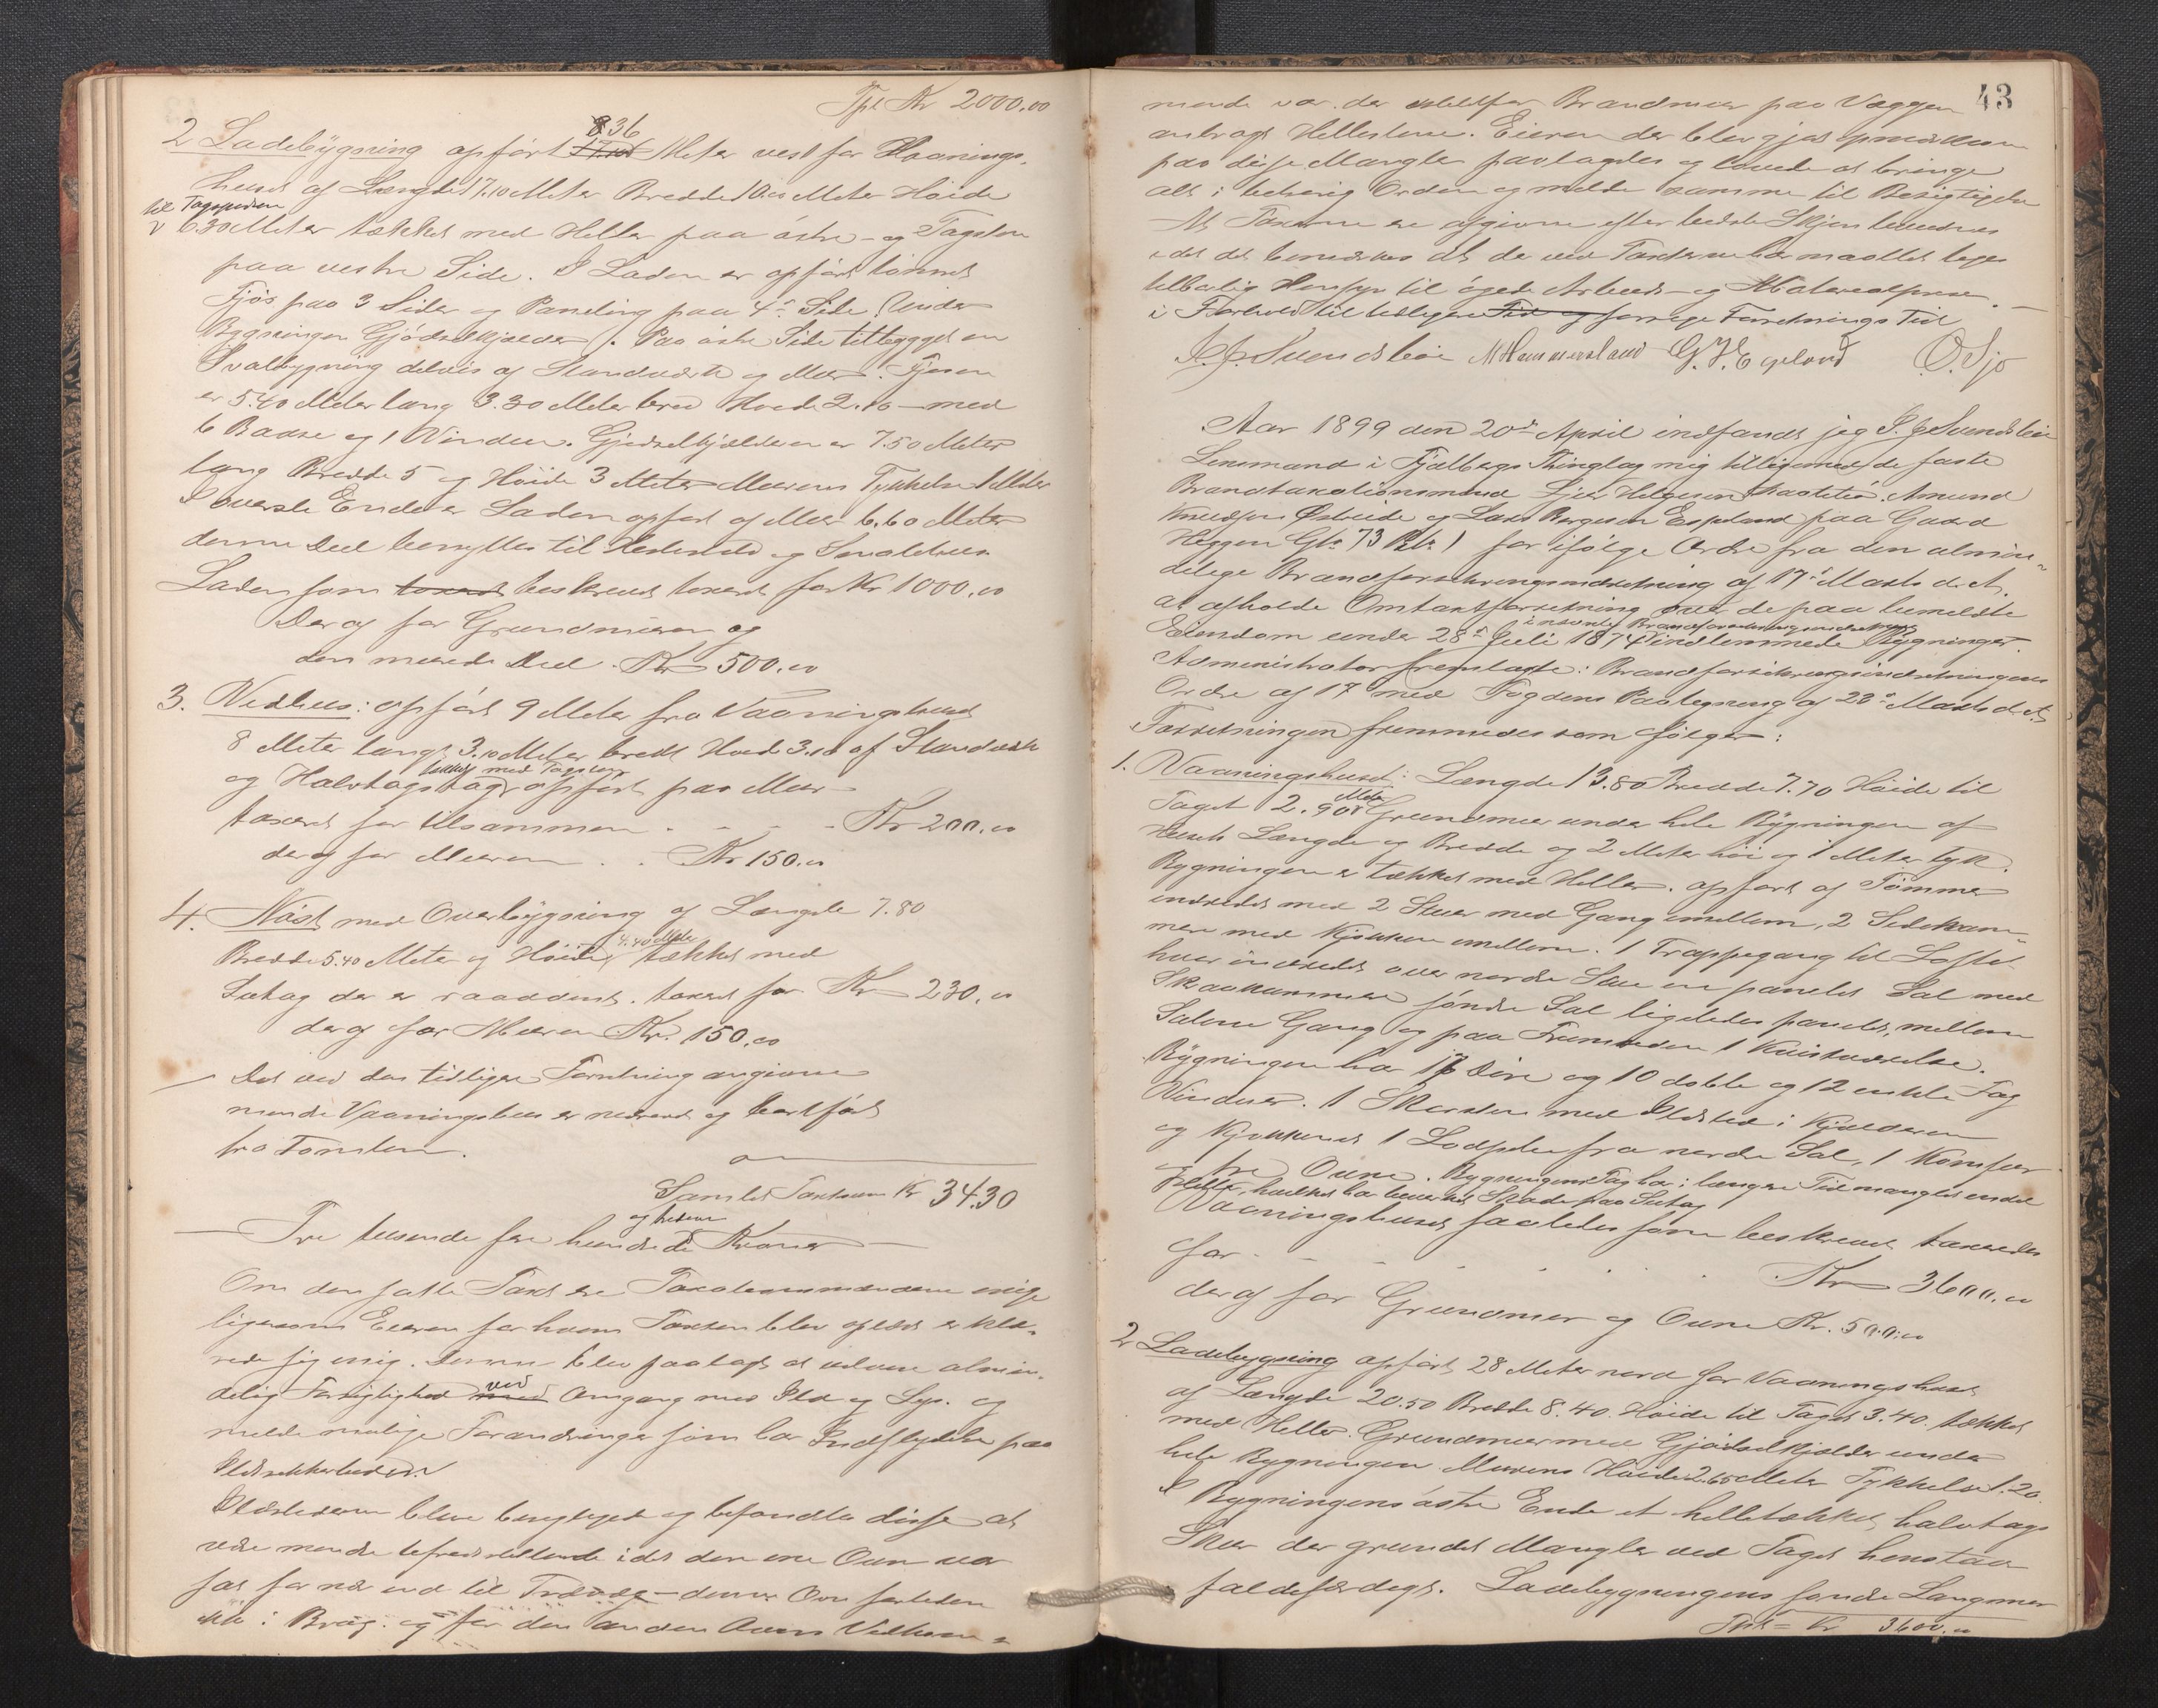 Tpt Kr 2000.00
2 Ladebygning opført 8.36 Meter vest for Vaanings-
huset af Længde 17.10 Meter Bredde 10.00 Meter Høide
til Tagspidsen
6.30 Meter tækket med Heller paa østre- og Tagsten
paa vestre Side. I Laden er opført tømret
Fjøs paa 3 Sider og Paneling paa 4de Side. Under
Bygningen Gjødselkjælder. Paa østre Side tilbygget en
Svalbygning delvis af Standværk og Muur. Fjøsen
er 5.40 Meter lang 3.30 Meter bred Høide 2.10 – med
6 Baase og 1 Vindue. Gjødselkjælderen er 7.50 Meter
lang Bredde 5 og Høide 3 Meter Murens Tykkelse 1 Meter
I øverste Ende er Laden opført af Muur 6.60 Meter
denne Deel benyttes til Hestestald og Smalehuus
Laden som beskrevet taxeret for Kr 1000.00
Deraf for Grundmuren og
den murede Deel. Kr 500.00
3. Vedhuus: opført 9 Meter fra Vaaningshuset
8 Meter langt 3.10 Meter bredt Høide 3.10 af Standværk
tækket med Tagsten
og Halvtagstag opført paa Muur
taxeret for tilsammen . - - - Kr 200.00
deraf for Muren . . Kr 150.00
4. Nøst med Overbygning af Længde 7.80
Bredde 5.40 Meter og Høide 4.40 Meter tækket med
Sutag der er raaddent. taxeret for Kr 230.00
deraf for Muren Kr. 150.00
Det ved den tidligere Forretning angivne
murede Vaaningshuus er nedrevet og bortført
fra Tomten.
Samlet Taxtsum Kr 3430
og tredive
Tre tusende fire hundrede Kroner
Om den satte Taxt ere Taxationsmændene enige
ligesom Eieren for hvem Taxten blev oplæst erklæ-
rede sig enig. Denne blev paalagt at udvise almin-
delig Forsigtighed ved Omgang med Ild og Lys. og
melde mulige Forandringer som har Indflydelse paa
Ildsikkerheden.
Ildstederne bleve besigtiget og befandtes disse at
være mindre tilfredsstillende idet den ene Ovn var
sat for nær ind til Trævæg – denne Ovn forleden
ikke i Brug. og for den anden Ovns Vedkom-
43
mende var der istedetfor Brandmur paa Væggen
anbragt Hellestene. Eieren der blev gjort opmærksom
paa disse Mangler paatagdes og lovede at bringe
alt i behørig Orden og melde samme til Besigtigelse
At Taxterne ere afgivne efter bedste Skjøn bevidnes
idet det bemærkes at der ved Taxterne har maattet tages
tilbørlig Hensyn til øgede Arbeids- og Materialpriser. –
i Forhold til tidligere forrige Forretnings Tid
J. J. Svendsbøe M Hammersland G. J. Egeland O. Sjo
Aar 1899 den 20de April indfandt jeg J. J. Svendsbøe
Lensmand i Fjelbergs Thinglag mig tilligemed de faste
Brandtaxationsmænd Sjur Helgesen Amund
Knudsen Østreide og Lars Børgesen Espeland paa Gaard
Heggen Gno 73 Bno 1 for ifølge Ordre fra den almin-
delige Brandforsikringsindretning af 17de Marts d. A.
at afholde Omtaxtforretning over de paa bemeldte
i nævnte Brandforsikringsindretning
Eiendom under 28de Juli 1874 indlemmede Bygninger.
Administrator fremlagde: Brandforsikringsindretningens
Ordre af 17 med Fogdens Paategning af 22de Marts d. A.
Forretningen fremmedes som følger:
1. Vaaningshuset: Længde 13.80 Bredde 7.70 Høide til
Taget 2.90 Meter Grundmur under hele Bygningen af
Husets Længde og Bredde og 2 Meter høi og 1 Meter tyk.
Bygningen er tækket med Heller. opført af Tømmer
indredet med 2 Stuer med Gang imellem, 2 Sidekam-
mere med Kjøkken imellem. 1 Trappegang til Loftet
hvor indredet over nordre Stue en panelet Sal med
Skraakammere søndre Sal ligeledes panelet, mellem
Salene Gang og paa Fremsiden 1 Kvistværelse.
Bygningen har 16 Døre og 10 doble og 12 enkle Fag
Vinduer. 1 Skorsten med Ildsted i Kjælderen
og Kjøkkenet 1 Lodpibe fra nordre Sal, 1 Komfur
tre Ovne. Bygningens Tag har i længere Tid manglet endel
Heller, hvilket har bevirket Skade paa Sutag
Vaaningshuset saaledes som beskrevet taxeredes
for - - . . . . Kr 3600.00
deraf for Grundmur og Ovne Kr. 500.00
2 Ladebygning opført 28 Meter nord for Vaaningshuset
af Længde 20.50 Bredde 8.40. Høide til Taget 3.40. tækket
med Heller. Grundmur med Gjødselkjælder under
hele Bygningen Murens Høide 2.65 Meter Tykkelse 1.20.
I Bygningens østre Ende et helletækket halvtags
Skur der grundet Mangler ved Taget henstaar
faldefærdigt. Ladebygningens søndre Langmur
Tpt = Kr 3600.00